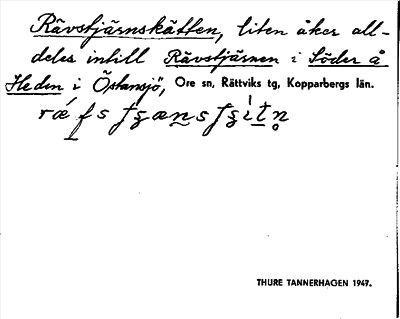 Rävstjärnskätten, liten åker all-
deles intill Rävstjärnen i Söder å
Heden i Östansjö, Ore sn, Rättviks tg, Kopparbergs län.
THURE TANNERHAGEN 1947.